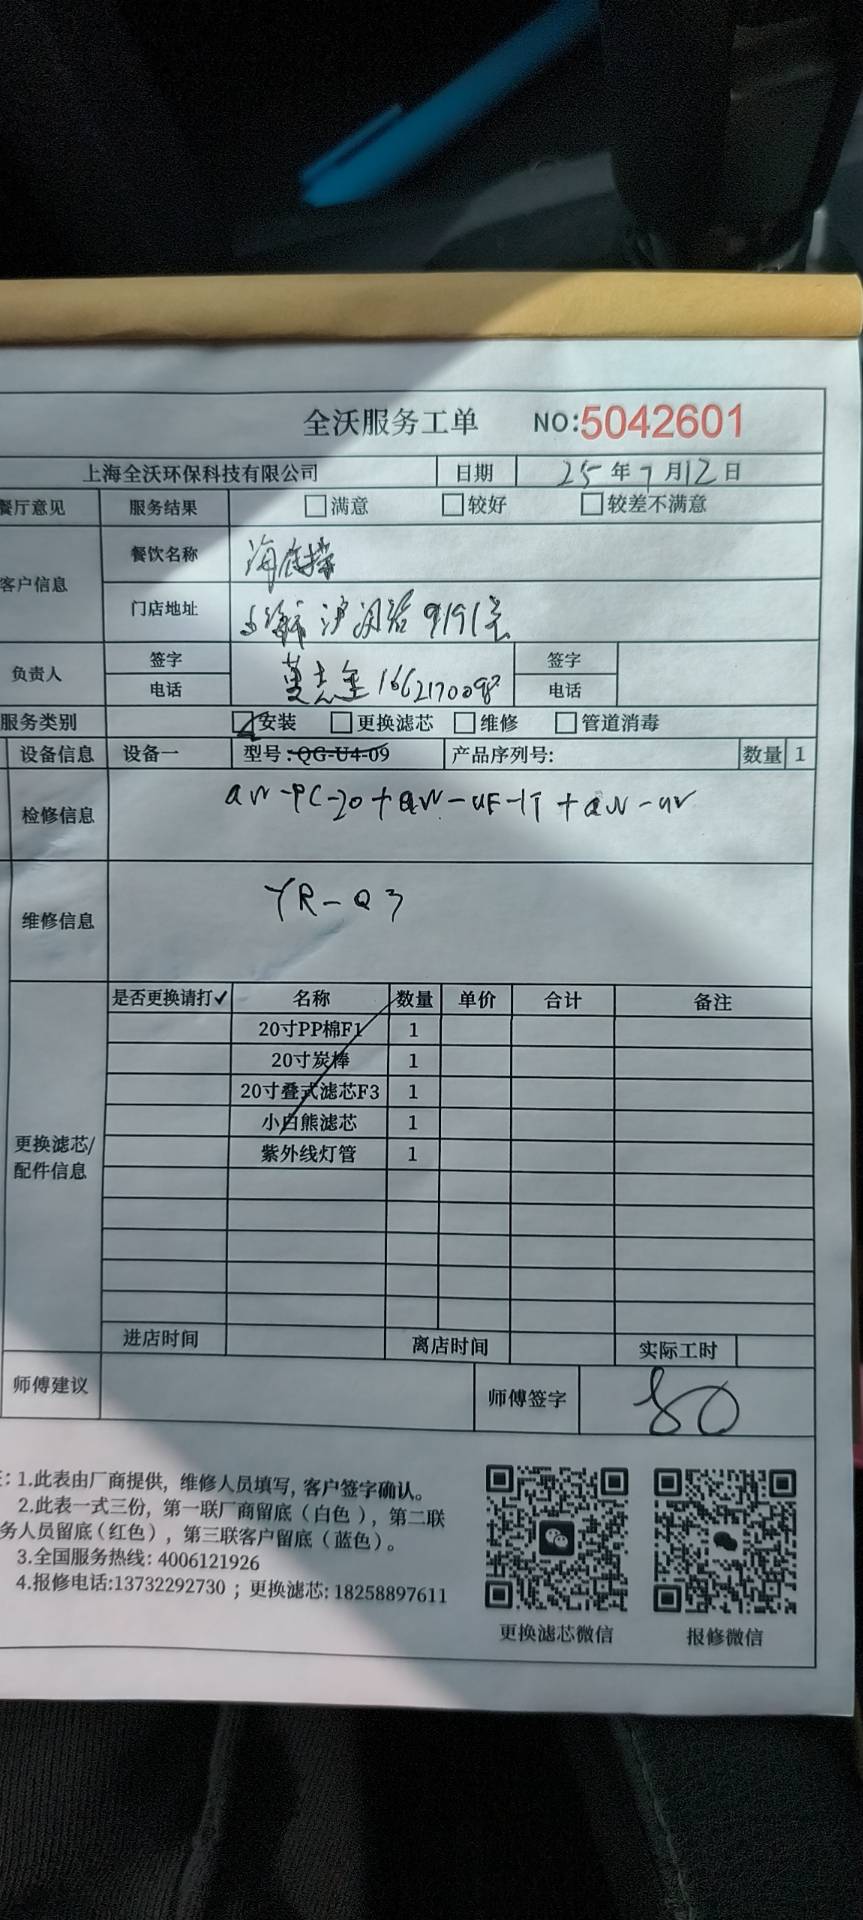 全沃服务工单 NO:5042601
上海全沃环保科技有限公司 日期 25年7月12日
餐厅意见 服务结果 满意 较好 较差不满意
客户信息 餐饮名称 海底捞
门店地址 上海市沪闵路9191号
负责人 签字 签字
电话 电话
服务类别 安装 更换滤芯 维修 管道消毒
设备信息 设备一 型号:QG-U4-09 产品序列号: 数量 1
检修信息 QW-PC-20+QW-UF-1T+QW-UV
维修信息 YR-Q3
是否更换请打✓ 名称 数量 单价 合计 备注
20寸PP棉F1 1
20寸炭棒 1
20寸叠式滤芯F3 1
小白熊滤芯 1
紫外线灯管 1
更换滤芯/
配件信息
进店时间 离店时间 实际工时
师傅建议 师傅签字
:1.此表由厂商提供，维修人员填写，客户签字确认。
2.此表一式三份，第一联厂商留底（白色），第二联
务人员留底（红色），第三联客户留底（蓝色）。
3.全国服务热线: 4006121926
4.报修电话:13732292730；更换滤芯: 18258897611
更换滤芯微信 报修微信